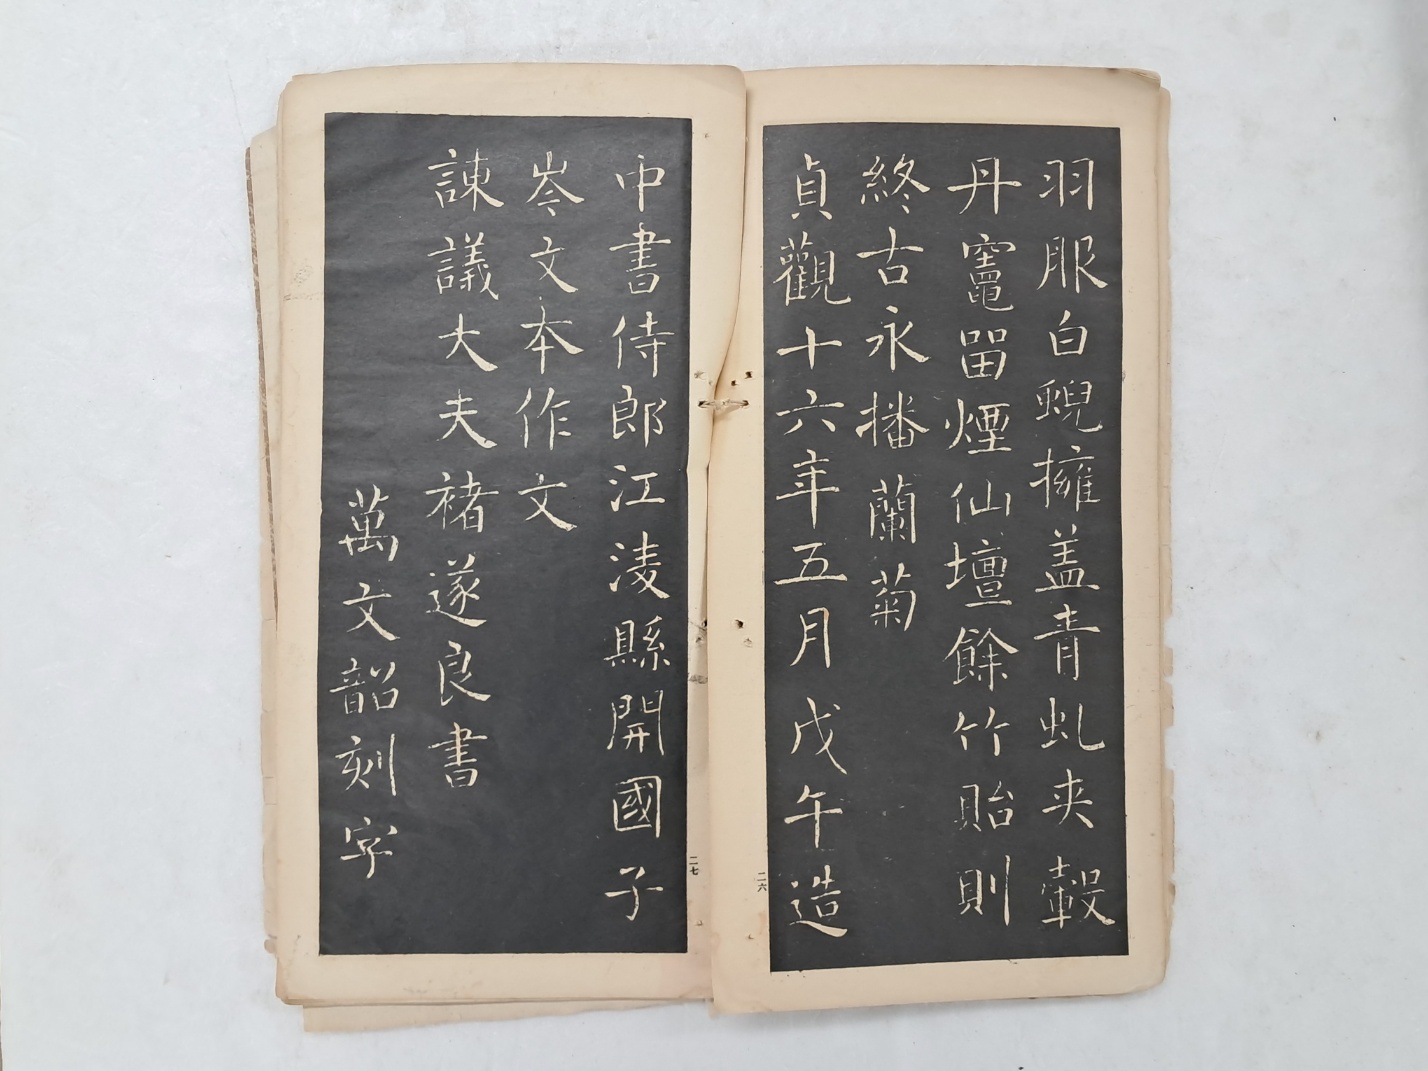 羽服白蜺擁盖青虬夹轂
丹竈畱煙仙壇餘竹貽則
終古永播蘭菊
貞觀十六年五月戊午造
二六
中書侍郎江淩縣開國子
岑文本作文
諫議大夫褚遂良書
萬文韶刻字
二七